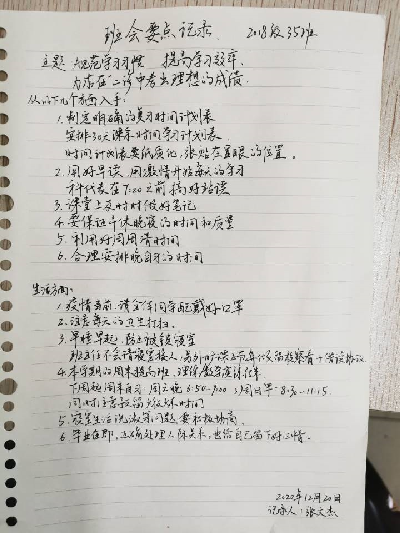 班会要点记录 2018级35班
主题 规范学习习惯 提高学习效率
为在二诊中考出理想的成绩.
从以下几个方面入手:
1. 制定明确的复习时间计划表
安排30天课余时间学习计划表
时间计划表要纸质记,张贴在显眼的位置。
2. 用好早读 用激情开始每天的学习
科代表在7:20之前搞好站读
3. 课堂上及时做好笔记
4. 要保证午休晚寝的时间和质量
5. 利用好周周清时间
6. 合理安排晚自习的时间
生活方面:
1. 疫情当前,请全体同学配戴好口罩
2. 注意每天的卫生打扫.
3. 早睡早起,
班主任不会请寝室接人
4. 本学期的周末提高班,理解
下周起周末自习. 周六晚 6:50-9:00 周日早:8:30-11:15.
同时注意
5. 寝室生活
6. 毕业在即,正确处理人际关系,也给自己留下好心情.
2020年12月20日
记录人:张文杰